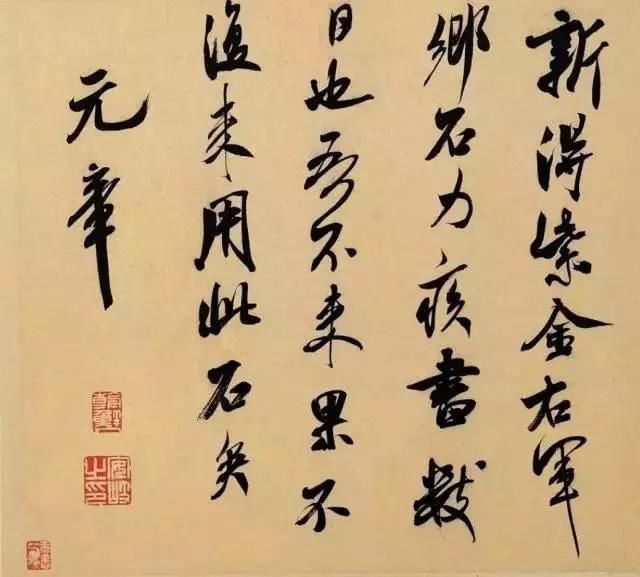 新得紫金右軍
鄉石力疾書數
日也吾不來果不
復來用此石矣
元章
安岐
之印